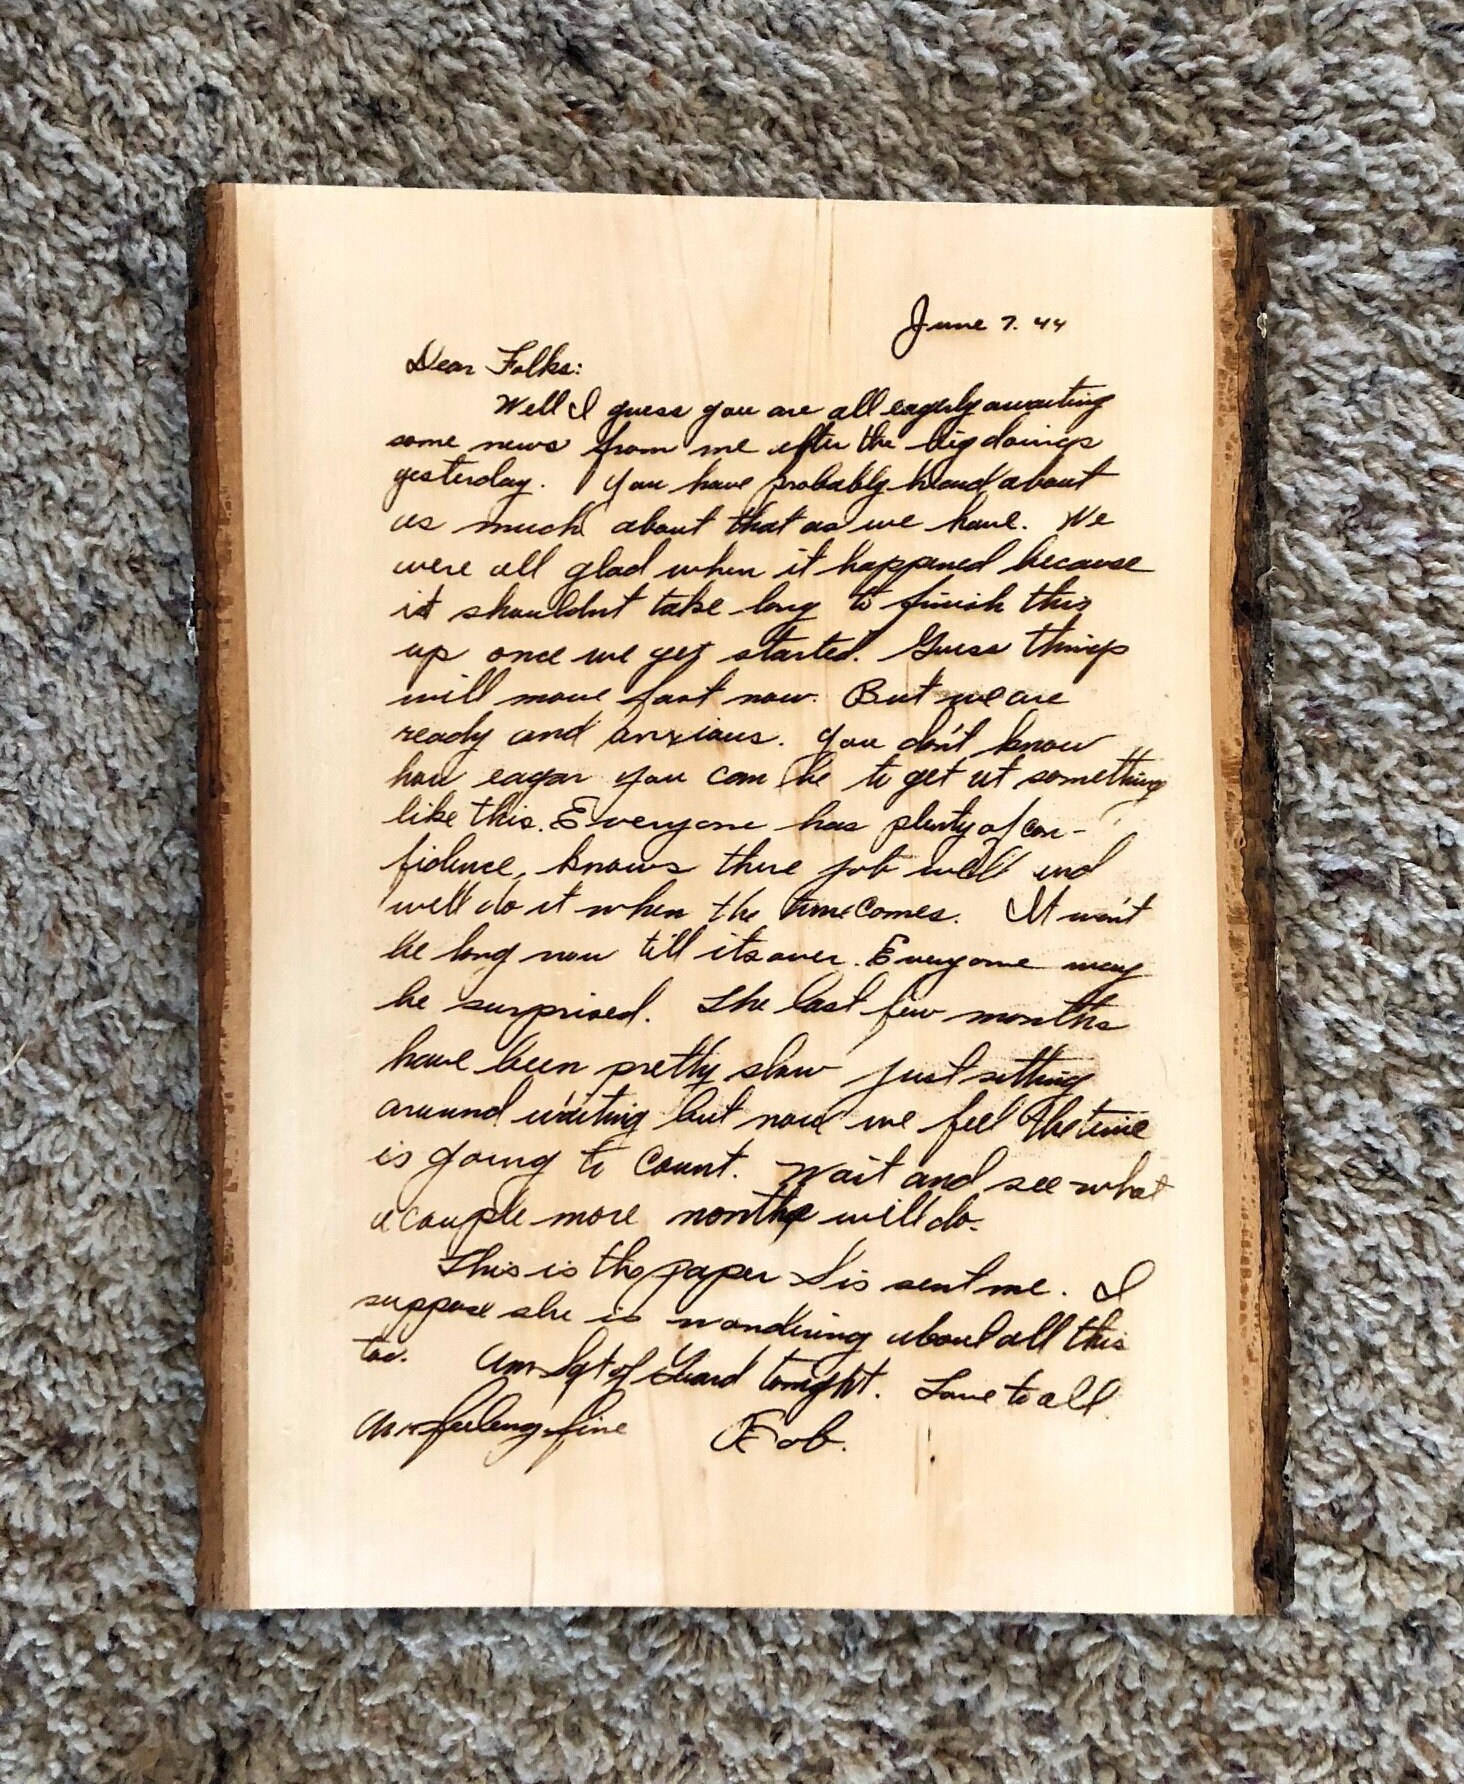 June 7. 44
Dear Folks:
Well I guess you are all eagerly awaiting
some news from me after the big doings
yesterday. You have probably heard about
as much about that as we have. We
were all glad when it happened because
it shouldnt take long to finish this
up once we get started. Guess things
will move fast now. But we are
ready and anxious. You don't know
how eager you can be to get at something
like this. Everyone has plenty of con-
fidence, knows there job well and
well do it when the time comes. It won't
be long now till its over. Everyone may
be surprised. The last few months
have been pretty slow just sitting
around waiting but now we feel the time
is going to count. Wait and see what
a couple more months will do.
This is the paper Sis sent me. I
suppose she is wondering about all this
too. Am Sgt of Guard tonight. Love to all
Am feeling fine Bob.